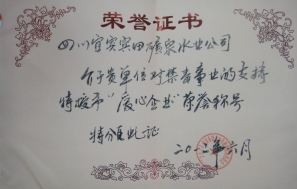 荣誉证书
四川宜宾实田矿泉水业公司
介于贵单位对集者事业的支持
特授予“爱心企业”荣誉称号
特颁此证
二〇一二年六月